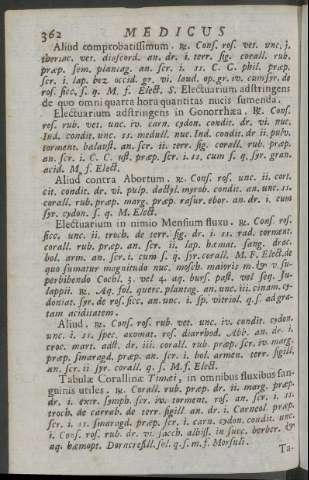 362 MEDICUS
Aliud comprobatissimum. ℞. Cons. ros. vet. unc. j.
theriac. vet. diascord. an. dr. i. terr. sig. corall. rub.
præp. sem. plantag. an. scr. i. ss. C. C. phil. præp.
scr. i. lap. bez occid. gr. vi. laud. op. gr. iv. cum syr. de
ros. sicc. s. q. M. f. Elect. S. Electuarium adstringens
de quo omni quarta hora quantitas nucis sumenda.
Electuarium adstringens in Gonorrhæa. ℞. Cons.
ros. rub. vet. unc. iv. carn. cydon. condit. dr. vi. nuc.
Ind. condit. unc. ss. medull. nuc. Ind. condit. dr. ii. pulv.
torment. balaust. an. scr. ii. terr. sig. corall. rub. præp.
an. scr. i. C. C. ust. præp. scr. i. ss. cum s. q. syr. gran.
acid. M. f. Elect.
Aliud contra Abortum. ℞. Cons. ros. unc. ii. cort.
cit. condit. dr. vi. pulp. dactyl. myrob. condit. an. unc. ss.
corall. rub. præp. marg. præp. rasur. ebor. an. dr. i. cum
syr. cydon. s. q. M. Elect.
Electuarium in nimio Mensium fluxu. ℞. Cons. ros.
sicc. unc. ii. troch. de terr. sig. dr. i. ss. rad. torment.
corall. rub. præp. an. scr. ii. lap. hæmat. sang. drac.
bol. arm. an. scr. i. cum s. q. syr. corall. M. F. Elect. de
quo sumatur magnitudo nuc. mosch. maioris m. & v. su-
perbibendo Cochl. 3. vel 4. aq. burs. past. vel seq. Ju-
lappii. ℞. Aq. fol. querc. plantag. an. unc. iii. cinam. cy-
doniat. syr. de ros. sicc. an. unc. i. sp. vitriol. q. s. ad gra-
tam aciditatem.
Aliud. ℞. Cons. ros. rub. vet. unc. iv. condit. cydon.
unc. i. ss. spec. aromat. ros. diarrhod. Abb. an. dr. i.
croc. mart. adst. dr. iii. corall. rub. præp. scr. iv. marg.
præp. smaragd. præp. an. scr. i. bol. armen. terr. sigill.
an. scr. ii syr. corall. q. s. M. f. Elect.
Tabulæ Corallinæ Timæi, in omnibus fluxibus san-
guinis utiles. ℞. Corall. rub. præp. dr. ii. marg. præp.
dr. i. extr. symph. scr. iv. torment. ros. an. scr. i. ss.
troch. de carrab. de terr. sigill. an. dr. i. Carneol. præp.
scr. i. ss. smaragd. præp. scr. i. carn. cydon. condit. unc.
i. Cons. ros. rub. dr. vi. sacch. albiss. in succ. berber. &
aq. hæmopt. Dorncrellii sol. q. s. m. f. Morsuli.
Ta-